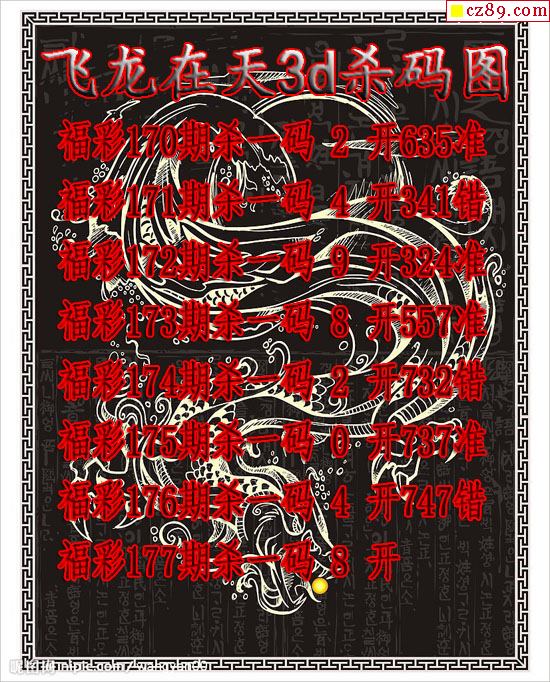 cz89.com
飞龙在天3d杀码图
福彩170期杀一码 2 开635准
福彩171期杀一码 4 开341错
福彩172期杀一码 9 开324准
福彩173期杀一码 8 开557准
福彩174期杀一码 2 开732错
福彩175期杀一码 0 开737准
福彩176期杀一码 4 开747错
福彩177期杀一码 8 开